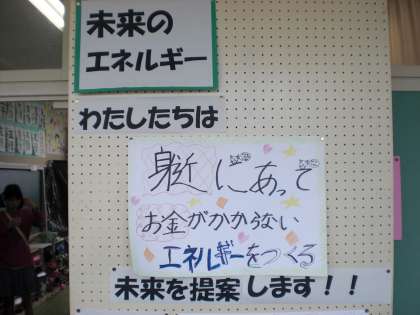 未来の
エネルギー
わたしたちは
身近にあって
お金がかからない
エネルギーをつくる
未来を提案します!!